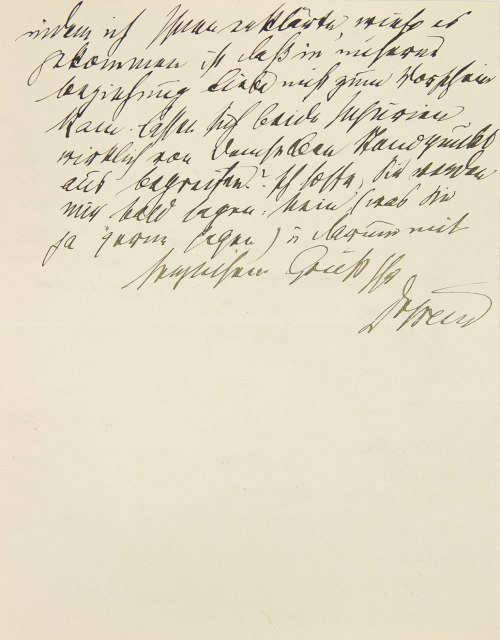 indem ich Ihnen erklärte, wieso es
gekommen ist daß in unserer
Beziehung Liebe nicht zum Vorschein
kam. Lassen sich beide
wirklich von demselben Standpunkt
aus begreifen? Ich hoffe, Sie werden
mir bald sagen: nein (was Sie
ja gerne sagen) u darum mit
herzlichem Gruß Ihr